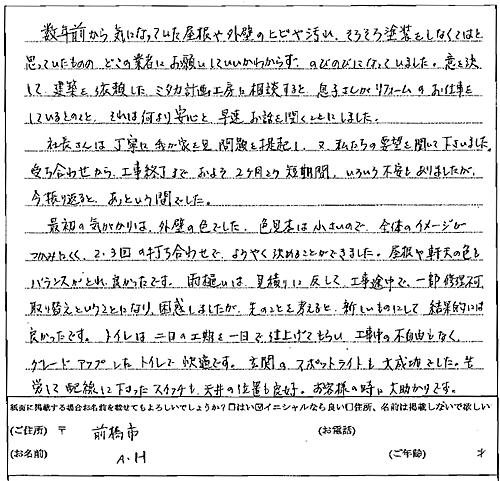 数年前から気になっていた屋根や外壁のヒビや汚れ、そろそろ塗装をしなくてはと
思っていたものの、どこの業者にお願いしていいかわからず、のびのびになっていました。意を決
して、建築を依頼したミタカ計画工房に相談すると、息子さんがリフォームのお仕事を
しているとのこと、それは何より安心と早速お話を聞くことにしました。
社長さんは、丁寧に我が家を見、問題を提起し、又、私たちの要望を聞いて下さいました。
受ち合わせから、工事終了まで、およそ2ヶ月という短期間、いろいろ不安もありましたが、
今振り返ると、あっという間でした。
最初の気がかりは、外壁の色でした。色見本は小さいので、全体のイメージが
つかみにくく、2・3回の打ち合わせで、ようやく決めることができました。屋根や軒天の色も
バランスがとれ、良かったです。雨樋いは、見積りに反して、工事途中で、一部修理不可
取り替えということになり、困惑しましたが、先のことを考えると、新しいものにして、結果的には
良かったです。トイレは二日の工期を一日で仕上げてもらい、工事中の不自由もなく、
グレードアップしたトイレで快適です。玄関のスポットライトも大成功でした。苦
労して配線して下さったスイッチも、天井の位置も良好。お客様の時に大助かりです。
紙面に掲載する場合お名前を載せてもよろしいでしょうか？□はい☑イニシャルなら良い□住所、名前は掲載しないで欲しい
(ご住所) 〒 前橋市 (お電話)
(お名前) A.H (ご年齢) 才